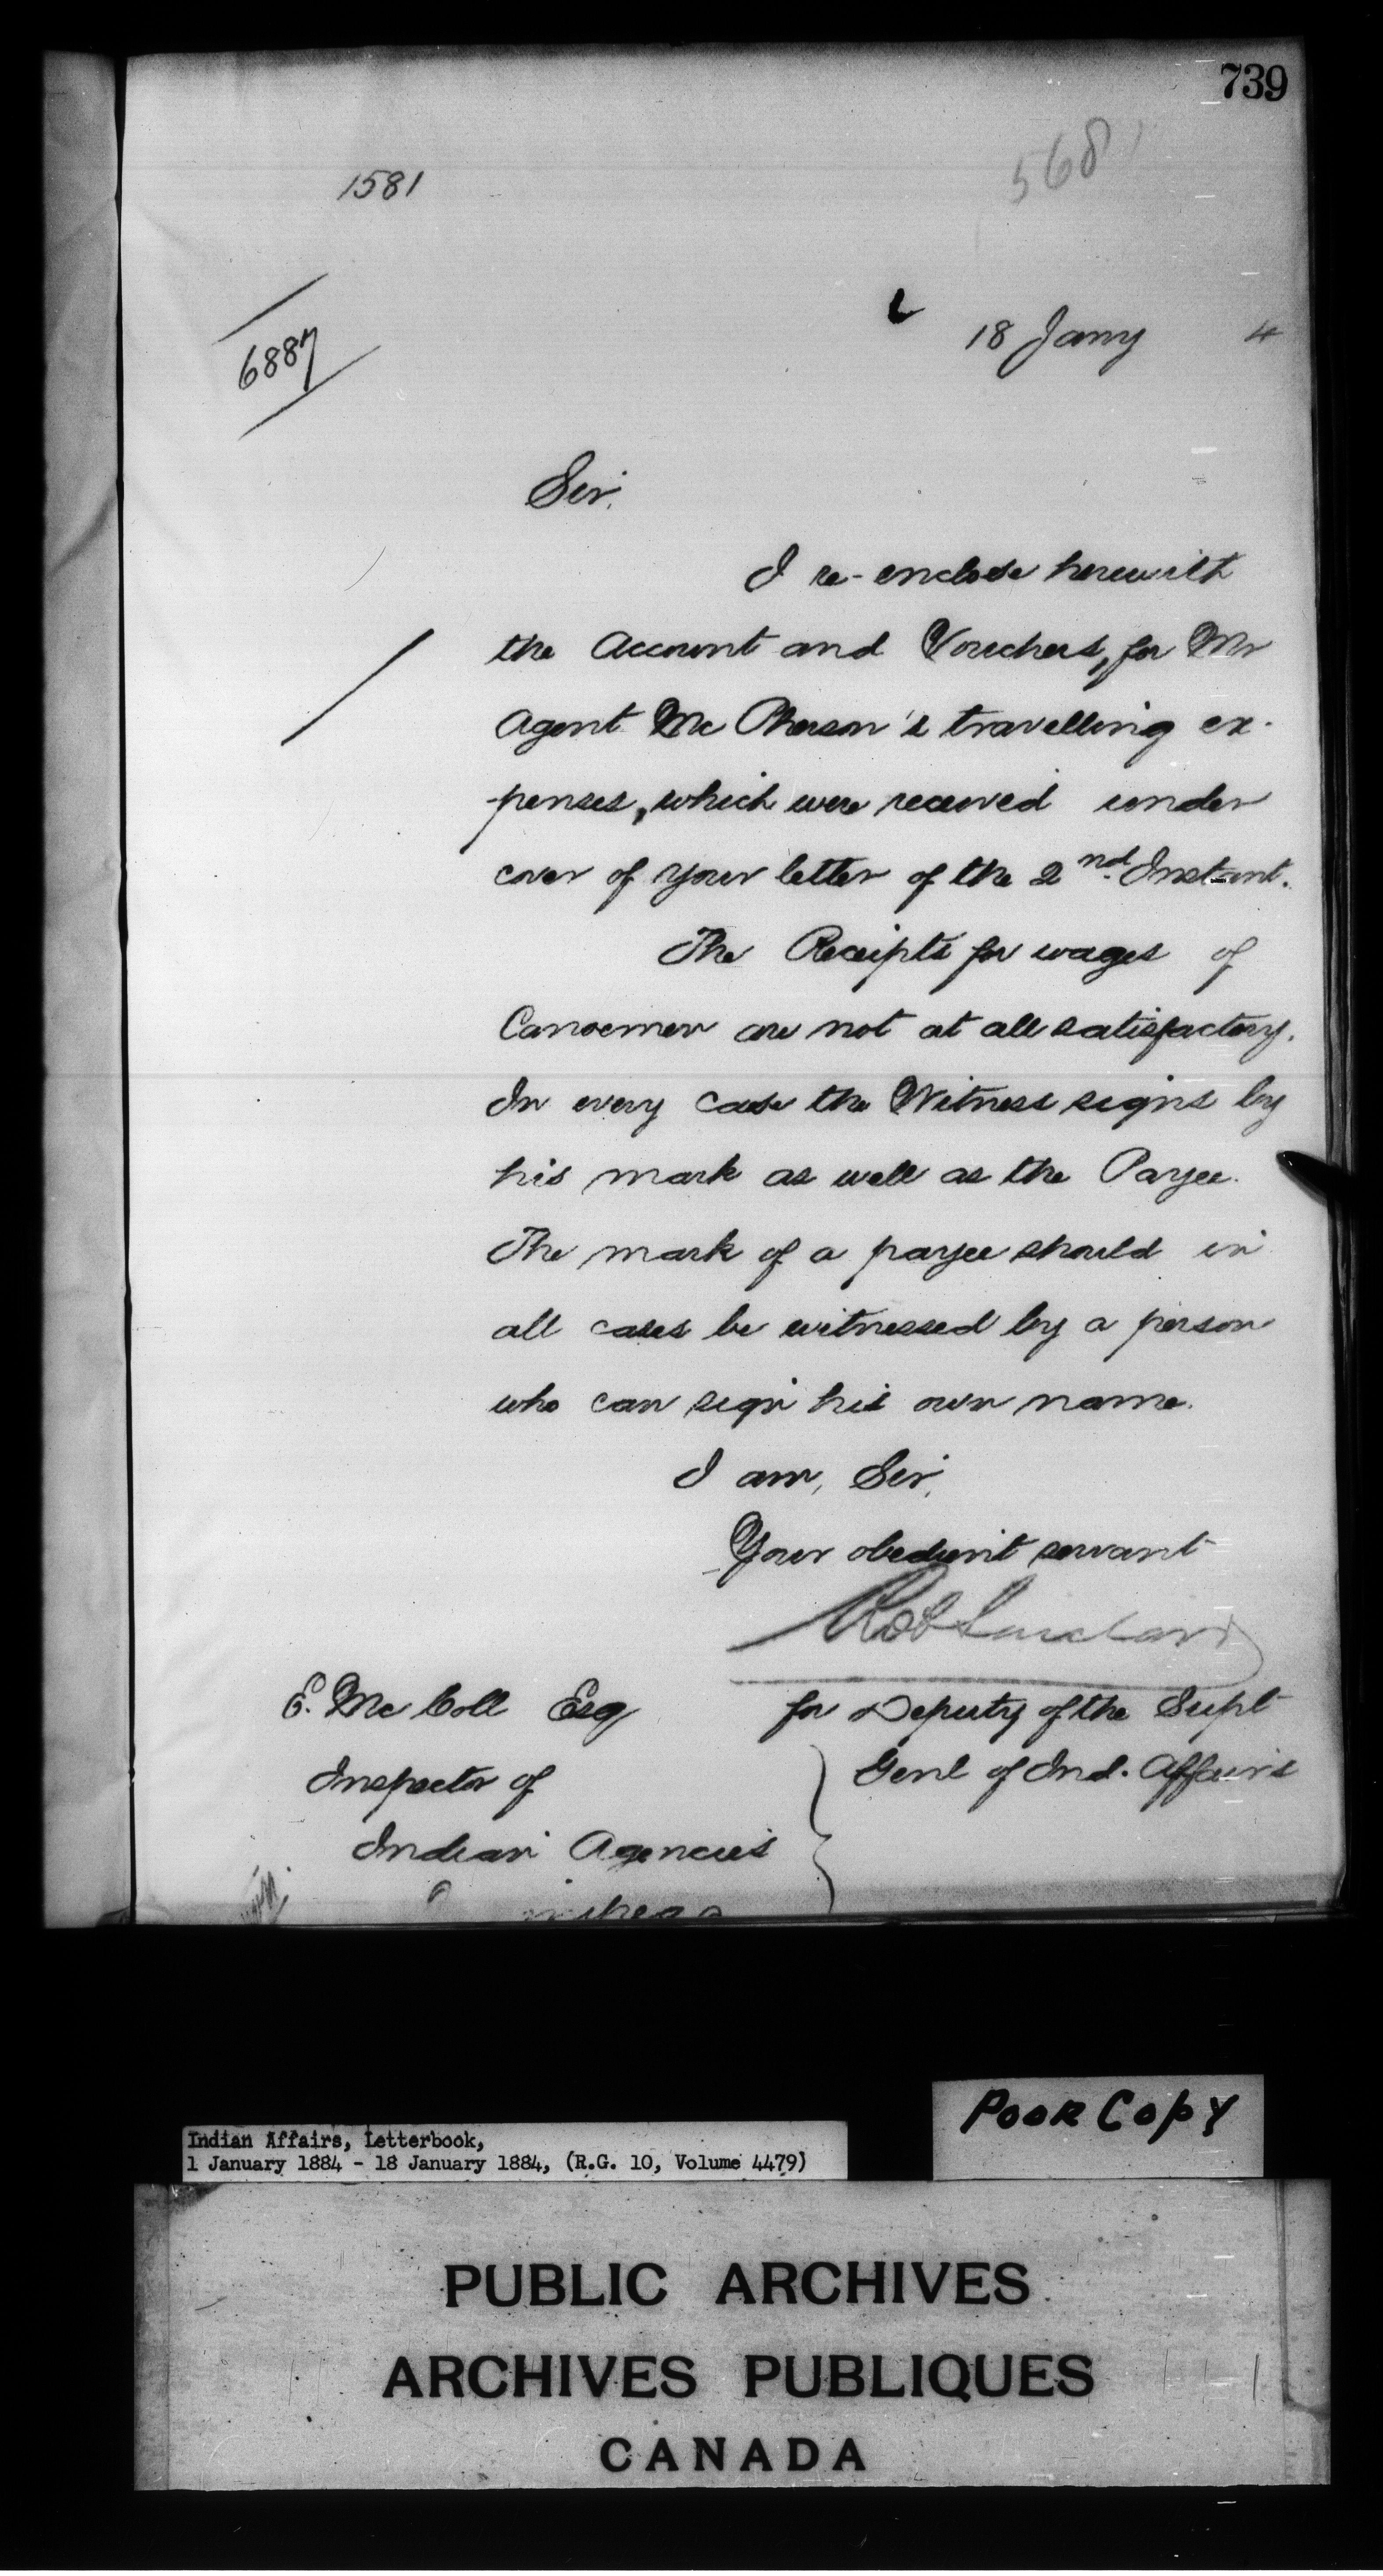 739
568
1581
18 Jany 4
6887
Sir,
I re-enclose herewith
the Account and Vouchers, for Mr
Agent McPherson's travelling ex-
-penses, which were received under
cover of your letter of the 2nd. Instant.
The Receipts for wages of
Canoemen are not at all satisfactory.
In every case the Witness signs by
his mark as well as the Payee.
The mark of a payee should in
all cases be witnessed by a person
who can sign his own name.
I am, Sir,
Your obedient servant
Rob Sinclair
for Deputy of the Supt
Genl of Ind. Affairs
E. McColl Esq
Inspector of
Indian Agencies
POOR COPY
Indian Affairs, Letterbook,
1 January 1884 - 18 January 1884, (R.G. 10, Volume 4479)
PUBLIC ARCHIVES
ARCHIVES PUBLIQUES
CANADA